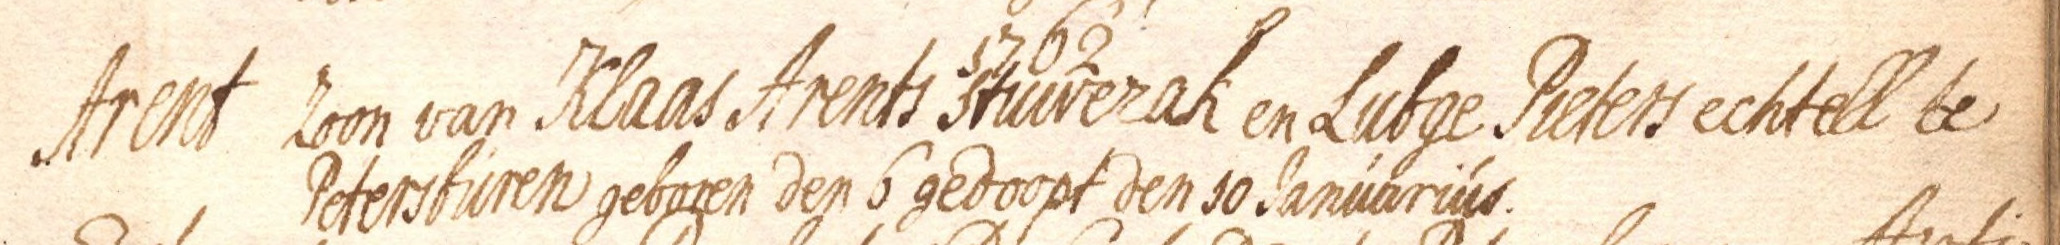 1762
Arent Zoon van Klaas Arents Stuivezak en Lubge Pieters echtell te
Petersburen geboren den 6 gedoopt den 10 Januarius.